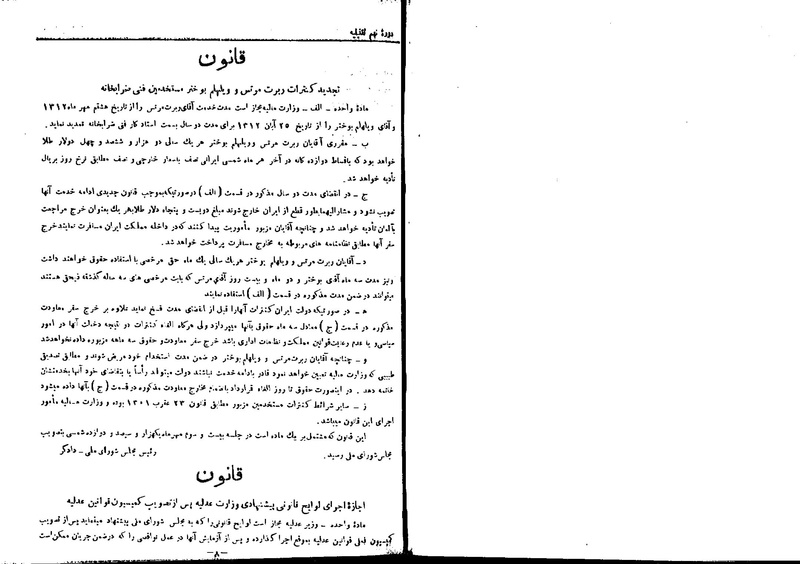 دورهٔ نهم تقنینیه
قانون
تجدید کنترات ربرت مرتس و ویلهلم بوختر مستخدمین فنی ضرابخانه
مادهٔ واحده - الف - وزارت مالیه مجاز است مدت خدمت آقای ربرت مرتس را از تاریخ هشتم مهر ماه ۱۳۱۲
و آقای ویلهلم بوختر را از تاریخ ۲۵ آبان ۱۳۱۲ برای مدت دو سال بسمت استاد کار فنی ضرابخانه تمدید نماید.
ب - مقرری آقایان ربرت مرتس و ویلهلم بوختر هر یك سالی دو هزار و ششصد و چهل دولار طلا
خواهد بود که باقساط دوازده گانه در آخر هر ماه شمسی ایرانی نصف باسعار خارجی و نصف مطابق نرخ روز بریال
تأدیه خواهد شد.
ج - در انقضای مدت دو سال مذکور در قسمت (الف) در صورتیکه بموجب قانون جدیدی ادامه خدمت آنها
تصویب نشود و مشارالیهما بطور قطع از ایران خارج شوند مبلغ دویست و پنجاه دلار طلا بهر یك بعنوان خرج مراجعت
بآلمان تأدیه خواهد شد و چنانچه آقایان مزبور مأموریت پیدا کنند که در داخله مملکت ایران مسافرت نمایند خرج
سفر آنها مطابق نظامنامه های مربوطه به مخارج مسافرت پرداخت خواهد شد.
د - آقایان ربرت مرتس و ویلهلم بوختر هر یك سالی یك ماه حق مرخصی با استفاده حقوق خواهند داشت
و نیز مدت سه ماه آقای بوختر و دو ماه و بیست روز آقای مرتس که بابت مرخصی های سه ساله گذشته ذیحق هستند
میتوانند در ضمن مدت مذکوره در قسمت (الف) استفاده نمایند
ه - در صورتیکه دولت ایران کنترات آنها را قبل از انقضای مدت فسخ نماید علاوه بر خرج سفر معاودت
مذکوره در قسمت (ج) معادل سه ماه حقوق بآنها میپردازد ولی هر گاه الغاء کنترات در نتیجه دخالت آنها در امور
سیاسی و یا عدم رعایت قوانین مملکت و نظامات اداری باشد خرج سفر معاودت و حقوق سه ماهه مزبوره داده نخواهد شد
و - چنانچه آقایان ربرت مرتس و ویلهلم بوختر در ضمن مدت استخدام خود مریض شوند و مطابق تصدیق
طبیبی که وزارت مالیه تعیین خواهد نمود قادر بادامه خدمت نباشند دولت میتواند رأساً یا بتقاضای خود آنها بخدمتشان
خاتمه دهد . در اینصورت حقوق تا روز الغاء قرارداد باضمیمه مخارج معاودت مذکوره در قسمت (ج) بآنها داده میشود
ز - سایر شرائط کنترات مستخدمین مزبور مطابق قانون ۲۳ عقرب ۱۳۰۱ بوده و وزارت مالیه مأمور
اجرای این قانون میباشد.
این قانون که مشتمل بر یك ماده است در جلسه بیست و سوم مهر ماه یکهزار و سیصد و دوازده شمسی بتصویب
مجلس شورای ملی رسید.
رئیس مجلس شورای ملی - دادگر
قانون
اجازهٔ اجرای لوایح قانونی پیشنهادی وزارت عدلیه پس از تصویب کمیسیون قوانین عدلیه
مادهٔ واحده - وزیر عدلیه مجاز است لوایح قانونی را که به مجلس شورای ملی پیشنهاد مینماید پس از تصویب
کمیسیون فعلی قوانین عدلیه بموقع اجرا گذارده و پس از آزمایش آنها در عمل نواقصی را که در ضمن جریان ممکن است
-۸-